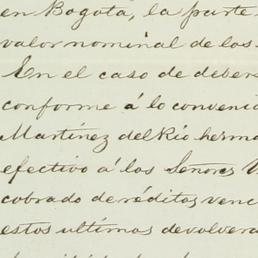 en Bogotá, la parte
valor nominal de los
En el caso de deber
conforme á lo convenid
Martínez del Río herma
efectivo á los Señores
cobrado de réditos venc
estos ultimos devolvera